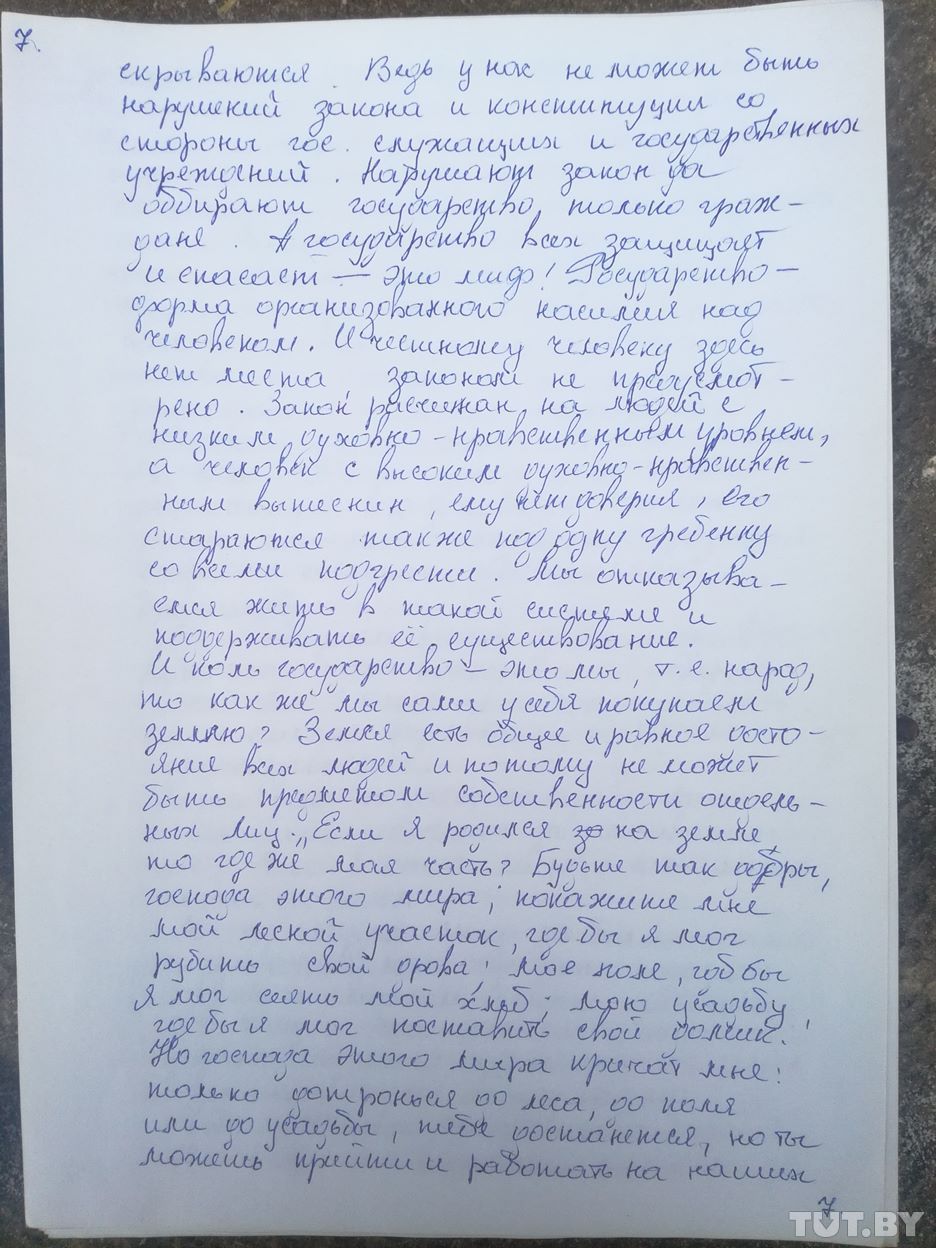 7.
скрываются. Ведь у нас не может быть
нарушений закона и конституции со
стороны гос. служащих и государственных
учреждений. Нарушают закон да
оббирают государство, только граж-
дане. А государство всех защищает
и спасает — это миф! Государство -
форма организованного насилия над
человеком. И честному человеку здесь
нет места, законом не предусмот-
рено. Закон расчитан на людей с
низким духовно-нравственным уровнем,
а человек с высоким духовно-нравствен-
ным вытеснин, ему нет доверия, его
стараются также под одну гребенку
со всеми подгрести. Мы отказыва-
емся жить в такой системе и
поддерживать её существование.
И коль государство - это мы, т.е. народ,
то как же мы сами у себя покупаем
землю? Земля есть общее и равное досто-
яние всех людей и потому не может
быть предметом собственности отдель-
ных лиц. „Если я родился на земле,
то где же моя часть? Будьте так добры,
господа этого мира, покажите мне
мой лесной участок, где бы я мог
рубить свои дрова; мое поле, где бы
я мог сеять мой хлеб; мою усадьбу,
где бы я мог поставить свой домик.
Но господа этого мира кричат мне:
только дотронься до леса, до поля
или до усадьбы, тебе достанется, но ты
можешь прийти и работать на наших
7
TUT.BY